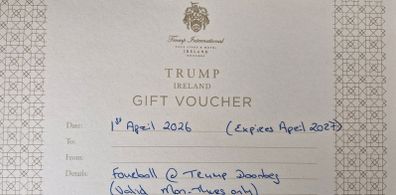 Trump International
GOLF LINKS & HOTEL
IRELAND
DOONBEG
TRUMP
IRELAND
GIFT VOUCHER
Date: 1st April 2026 (Expires April 2027)
To:
From:
Details: Fourball @ Trump Doonbeg
(Valid Mon-Thurs only)